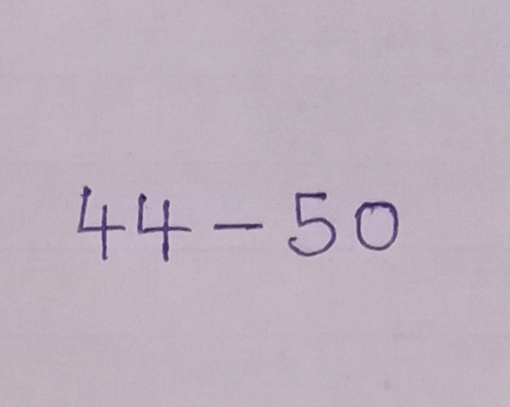 44 - 50